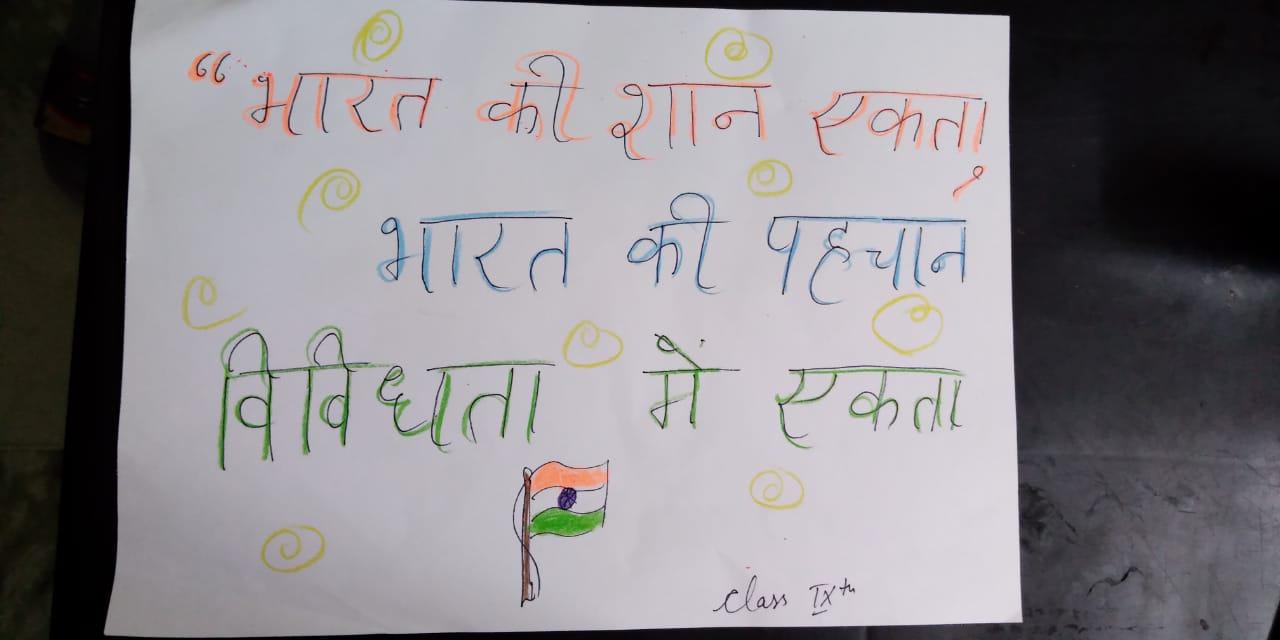 “भारत की शान एकता,
भारत की पहचान
विविधता में एकता
Class IXth